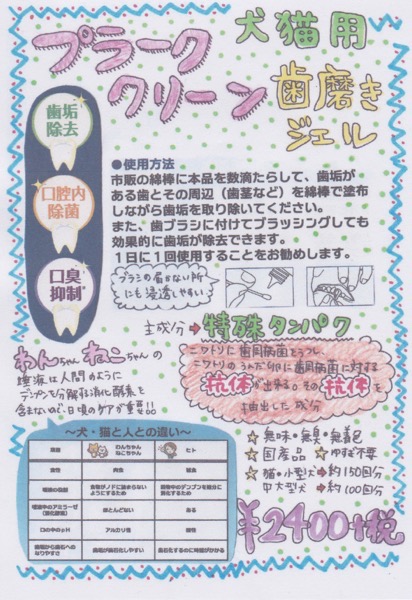 犬猫用
プラーク
クリーン
歯磨き
ジェル
歯垢
除去
口腔内
除菌
口臭
抑制
●使用方法
市販の綿棒に本品を数滴たらして、歯垢が
ある歯とその周辺（歯茎など）を綿棒で塗布
しながら歯垢を取り除いてください。
また、歯ブラシに付けてブラッシングしても
効果的に歯垢が除去できます。
1日に1回使用することをお勧めします。
ブラシの届かない所
にも浸透しやすい
主成分→特殊タンパク
ニワトリに歯周病菌をうつし、
ニワトリのうんだ卵に歯周病菌に対する
抗体が出来る。その抗体を
抽出した成分
わんちゃんねこちゃんの
唾液は人間のように
デンプンを分解する消化酵素を
含まないので、日頃のケアが重要!!
～犬・猫と人との違い～
わんちゃん
ねこちゃん
ヒト
食性 肉食 雑食
食物がノドに詰まらない
ようにするため
唾液中のアミラーゼ
（消化酵素）
ほとんどない ある
口の中のpH アルカリ性 酸性
歯垢から歯石への
なりやすさ
歯垢が歯石化しやすい 歯石化するのに時間がかかる
☆無味・無臭・無着色
☆国産品 ☆ゆすぎ不要
☆猫・小型犬→約150回分
中大型犬→約100回分
¥2400+税